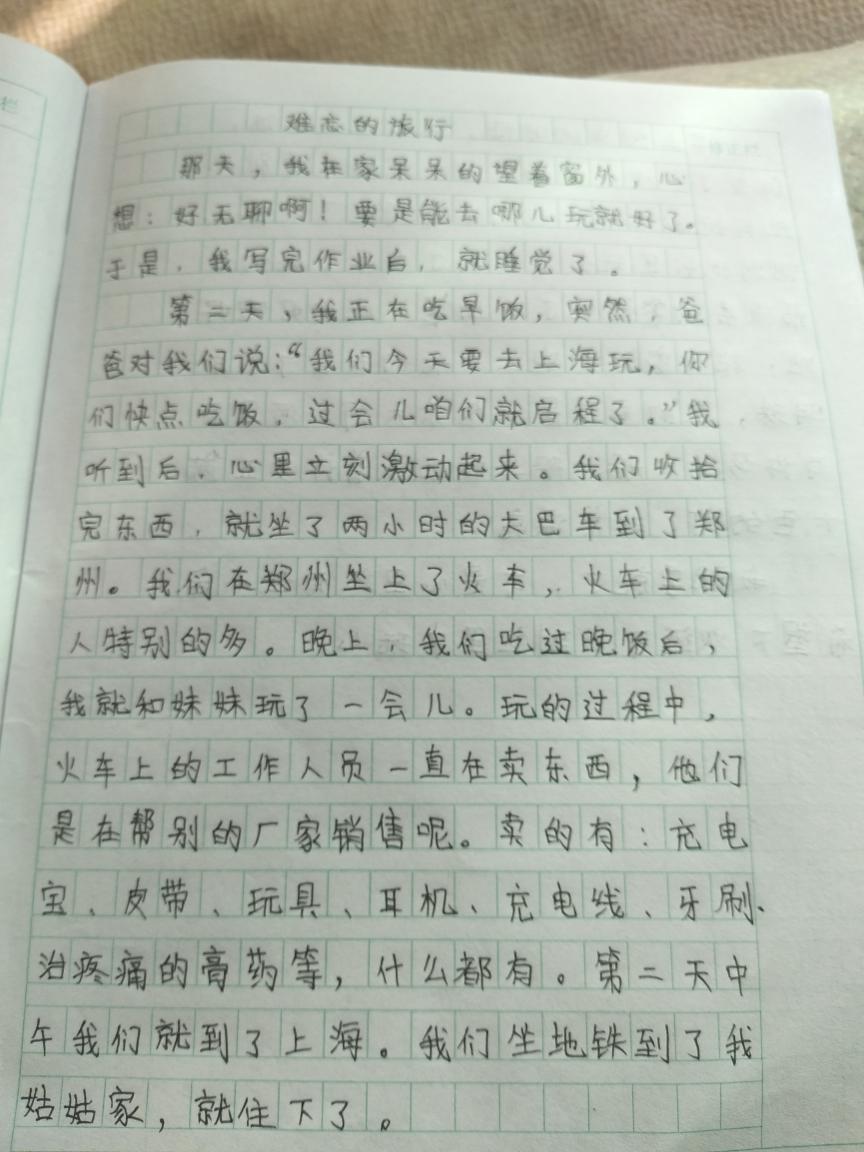 难忘的旅行
那天，我在家呆呆的望着窗外，心
想：好无聊啊！要是能去哪儿玩就好了。
于是，我写完作业后，就睡觉了。
第二天，我正在吃早饭，突然，爸
爸对我们说：“我们今天要去上海玩，你
们快点吃饭，过会儿咱们就启程了。”我
听到后，心里立刻激动起来。我们收拾
完东西，就坐了两小时的大巴车到了郑
州。我们在郑州坐上了火车，火车上的
人特别的多。晚上，我们吃过晚饭后，
我就和妹妹玩了一会儿。玩的过程中，
火车上的工作人员一直在卖东西，他们
是在帮别的厂家销售呢。卖的有：充电
宝、皮带、玩具、耳机、充电线、牙刷、
治疼痛的膏药等，什么都有。第二天中
午我们就到了上海。我们坐地铁到了我
姑姑家，就住下了。